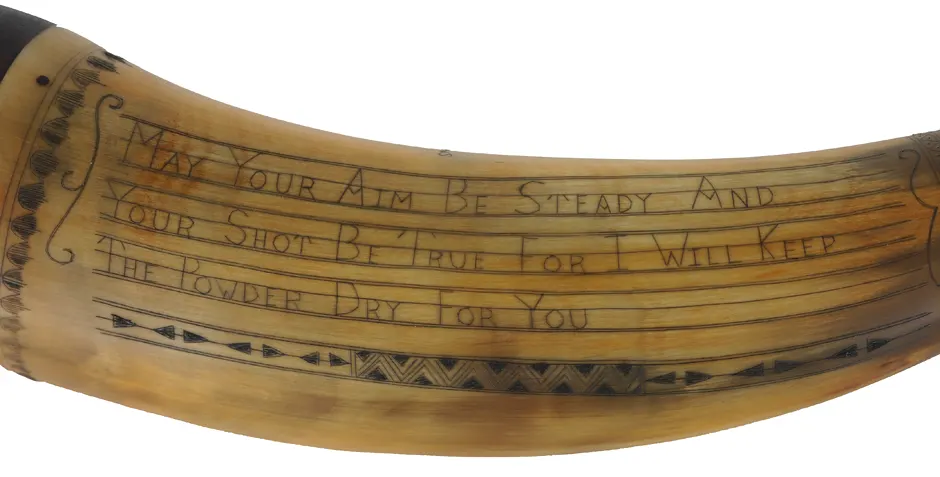 May Your Aim Be Steady And
Your Shot Be True For I Will Keep
The Powder Dry For You